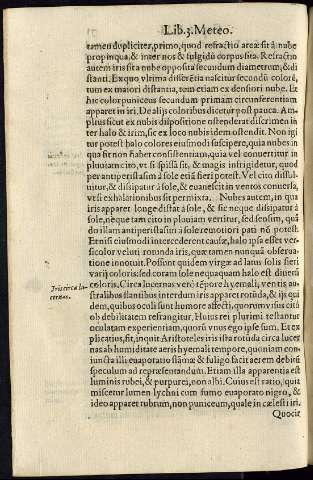 Lib.3.Meteo.
tamen dupliciter, primo, quod refractio area: sit à nube
propinqua, & inter nos & fulgidũ corpus sita. Refractio
autem iris sita nube opposita secundum diametrum, & di
stanti. Ex quo vltima differẽtia nascitur secundũ colorẽ,
tum ex maiori distantia, tem etiam ex densiori nube. Et
hic color puniceus secundum primam circunferentiam
apparet in iri. De alijs coloribus dicetur post pauca. Am
plius sicut ex nubis dispositione ostenderat discrimen in
ter halo & irim, sic ex loco nubis idem ostendit. Non igi
tur potest halo colores eiusmodi suscipere, quia nubes in
qua sit non habet consistentiam, quia vel conuertitur in
pluuiam cito, vt si spissa sit, & magis infrigidetur, quod
per antiperistasim à sole etiã fieri potest. Vel cito dissol-
uitur, & dissipatur à sole, & euanescit in ventos conuersa,
vt si exhalationibus sit permixta. Nubes autem, in qua
iris apparet longe dissat à sole, & sic neque dissipatur à
sole, neque tam cito in pluuiam vertitur, sed sensim, quã
do illam antiperistasim à sole remotiori pati nõ potest.
Et nisi eiusmodi intercederent causæ, halo ipsa esset ver-
sicolor veluti rotunda iris, quæ tamen nunquã obserua-
tione innotuit. Possunt quidem virgæ ad latus solis fieri
varij coloris: sed coram sole nequaquam halo est diuersi
coloris. Circa lucernas verò tẽpore hyemali, ventis au-
stralibus flantibus interdum iris apparet rotũda, & ijs qui
dem, quibus oculi sunt humore affecti, quorum visus citò
ob debilitatem refrangitur. Huius rei plurimi testantur
oculatam experientiam, quorũ vnus ego ipse sum. Et ex
plicatius, sit, inquit Aristoteles iris ista rotũda circa lucer
nas ab humiditate aeris hyemali tempore, quoniam con-
iuncta illi euaporatio flãmæ & fuligo facit aerem debitũ
speculum ad repræsentandum. Etiam illa apparentia est
luminis rubei, & purpurei, non albi. Cuius est ratio, quia
miscetur lumen lychni cum fumo euaporato nigro, &
ideo apparet rubrum, non puniceum, quale in cælesti iri.
Quocir
Iris circa lu-
cernas.